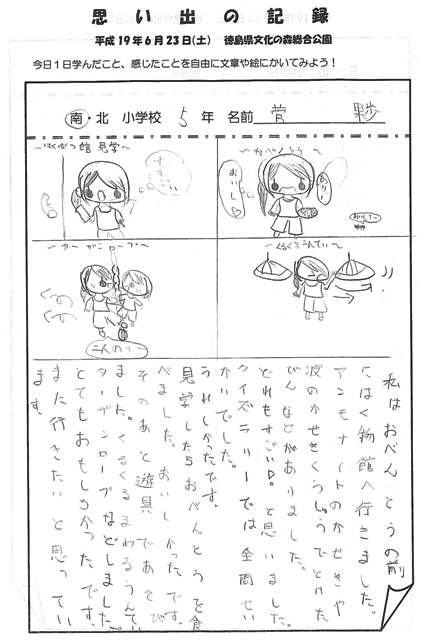 思い出の記録
平成19年6月23日(土) 徳島県文化の森総合公園
今日1日学んだこと、感じたことを自由に文章や絵にかいてみよう!
南・北 小学校 5年 名前 菅
~はくぶつ館見学~
すごい
おいしい
~ターザンロープ~
二人のり~
~くるくるうんてい~
私はおべんとうの前
にはく物館へ行きました。
アンモナイトのかせきや
波のかせき
びんなどがありました。
どれもすごい!と思いました。
クイズラリーでは全問せい
かいでした。
うれしかったです。
見学したらおべんとうを食
べました。おいしかったです。
そのあと遊具であそび
ました。くるくるまわるうんてい、
ターザンロープなどしました。
とてもおもしろかったです。
また行きたいと思ってい
ます。